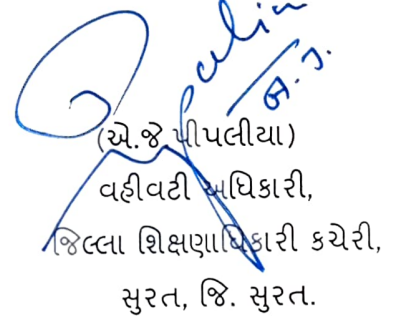 (એ.જે પીપલીયા)
વહીવટી અધિકારી,
જિલ્લા શિક્ષણાધિકારી કચેરી,
સુરત, જિ. સુરત.